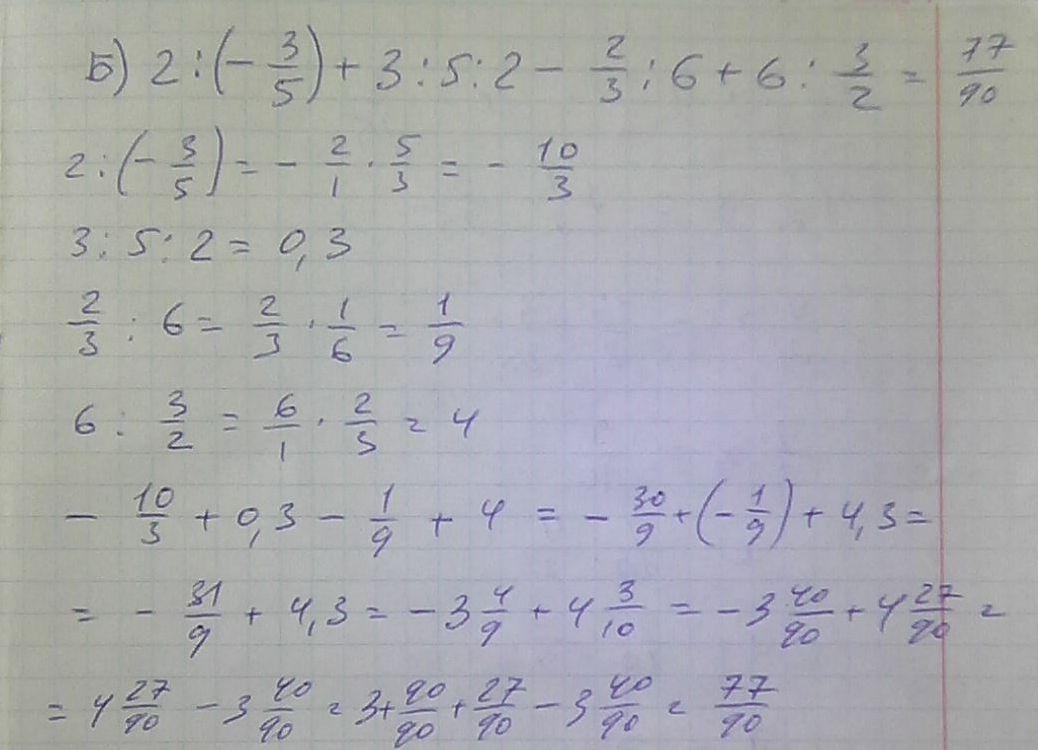 Б) 2 : (- 3/5) + 3 : 5 : 2 - 2/3 : 6 + 6 : 3/2 = 77/90
2 : (- 3/5) = - 2/1 · 5/3 = - 10/3
3 : 5 : 2 = 0,3
2/3 : 6 = 2/3 · 1/6 = 1/9
6 : 3/2 = 6/1 · 2/3 = 4
- 10/3 + 0,3 - 1/9 + 4 = - 30/9 + (- 1/9) + 4,3 =
= - 31/9 + 4,3 = - 3 4/9 + 4 3/10 = - 3 40/90 + 4 27/90 =
= 4 27/90 - 3 40/90 = 3 + 90/90 + 27/90 - 3 40/90 = 77/90